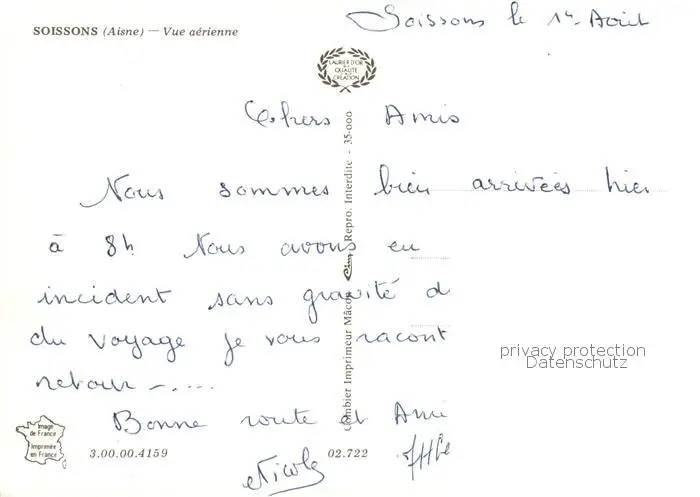 SOISSONS (Aisne) — Vue aérienne
Soissons le 1er Août
LAURIER D'OR
DE LA
QUALITÉ
CRÉATION
Chers Amis
Nous sommes bien arrivées hier
à 8h Nous avons eu
incident sans gravité d
du voyage je vous racont
retour –....
Bonne route et Ami
Nicole
Combier Imprimeur Mâcon Cim Repro. Interdite - 35-000
privacy protection
Datenschutz
Image
de France
Imprimée
en France
3.00.00.4159
02.722